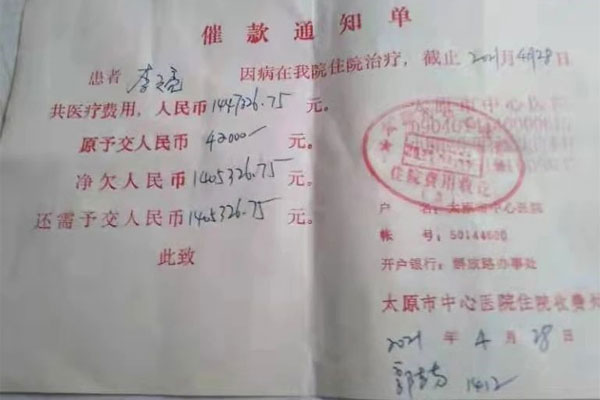 催款通知单
患者 李 亮 因病在我院住院治疗，截止2021年4月28日
共医疗费用，人民币1447326.75元。
原予交人民币 42000 元。
净欠人民币1405326.75元。
还需予交人民币1405326.75元。
此致
太原市中心医院
住院费用收讫
户 名：太原市中心医院
帐 号：50144600
开户银行：解放路办事处
太原市中心医院住院收费
2021 年 4 月 28 日
1412